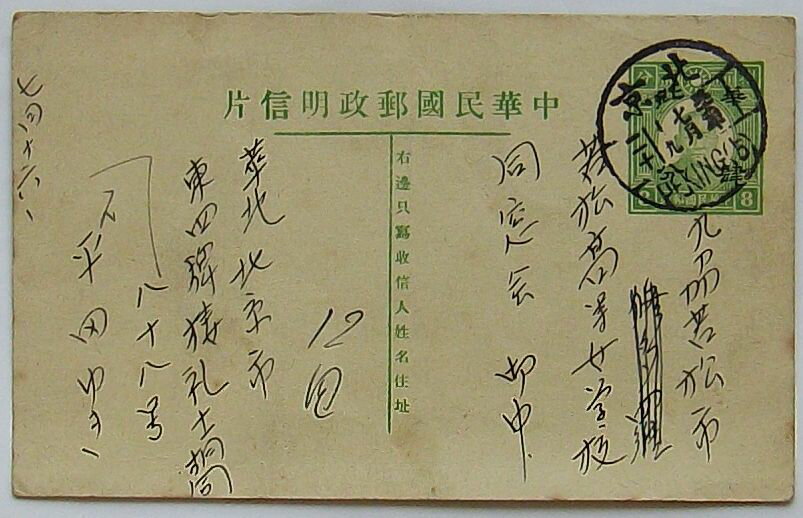 中華民國郵政明信片
右邊只寫收信人姓名住址
北京
PEKING(15)
8
九州若松市
若松高等女学校
同窓会 御中
12回
華北 北京市
東四牌楼礼士胡同
八十八号
平田
七月十六